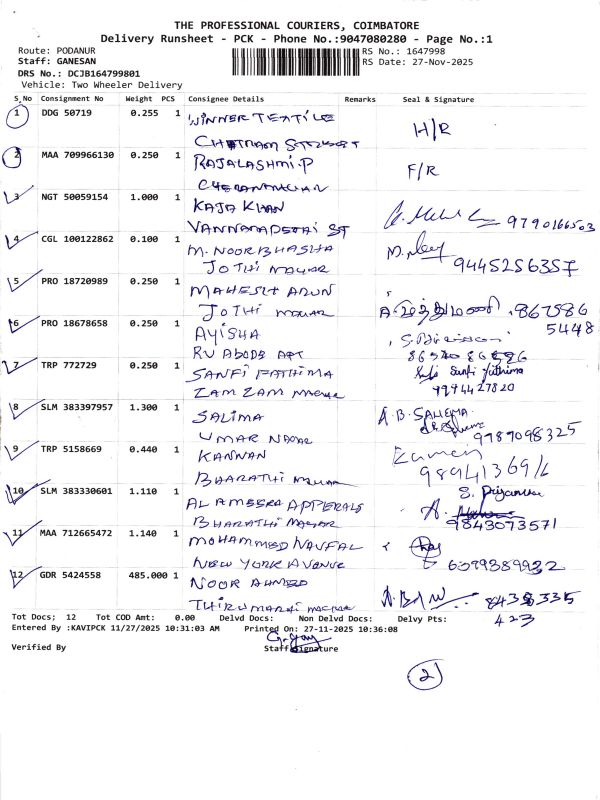 THE PROFESSIONAL COURIERS, COIMBATORE
Delivery Runsheet - PCK - Phone No.:9047080280 - Page No.:1
Route: PODANUR
Staff: GANESAN
DRS No.: DCJB164799801
Vehicle: Two Wheeler Delivery
RS No.: 1647998
RS Date: 27-Nov-2025
S.No Consignment No Weight PCS Consignee Details Remarks Seal & Signature
1 DDG 50719 0.255 1 WINNER TEXTILE
H/R
2 MAA 709966130 0.250 1 RAJALASHMI.P
F/R
3 NGT 50059154 1.000 1 KAJA KHAN
VANNARAPETAI ST 9790166503
4 CGL 100122862 0.100 1 M. NOORBHASHA
JOTHI NAGAR 9445256357
5 PRO 18720989 0.250 1 MAHESH ARUN
JOTHI NAGAR 867586
5448
6 PRO 18678658 0.250 1 AYISHA
RV ABODE APT
7 TRP 772729 0.250 1 SANFI FATHIMA
ZAM ZAM NAGAR 9994427820
8 SLM 383397957 1.300 1 SALIMA A.B. SAHEMA
UMAR NAGAR 9789098325
9 TRP 5158669 0.440 1 KANNAN
BHARATHI NAGAR
10 SLM 383330601 1.110 1 AL AMEERA APPERALS
BHARATHI NAGAR 9843073571
11 MAA 712665472 1.140 1 MOHAMMED NAVFAL
NEW YORK AVENUE 6379389932
12 GDR 5424558 485.000 1 NOOR AHMED
423
Tot Docs; 12 Tot COD Amt: 0.00 Delvd Docs: Non Delvd Docs: Delvy Pts:
Entered By :KAVIPCK 11/27/2025 10:31:03 AM Printed On: 27-11-2025 10:36:08
Verified By Staff Signature
2